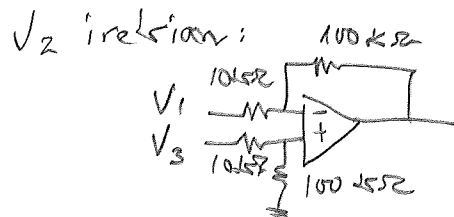 V₂ irelsion:
100 kΩ
10kΩ
V₁
V₃
10kΩ
100 kΩ